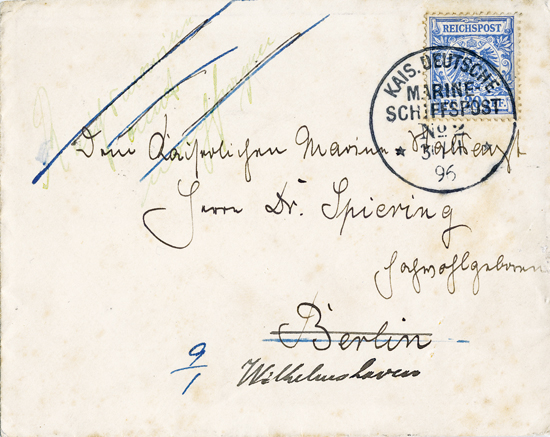 REICHSPOST
KAIS. DEUTSCHE
MARINE-
SCHIFFSPOST
No 2
96
Dem Kaiserlichen Marine
Herrn Dr. Spiering
Hochwohlgeboren
Berlin
9/1
Wilhelmshaven